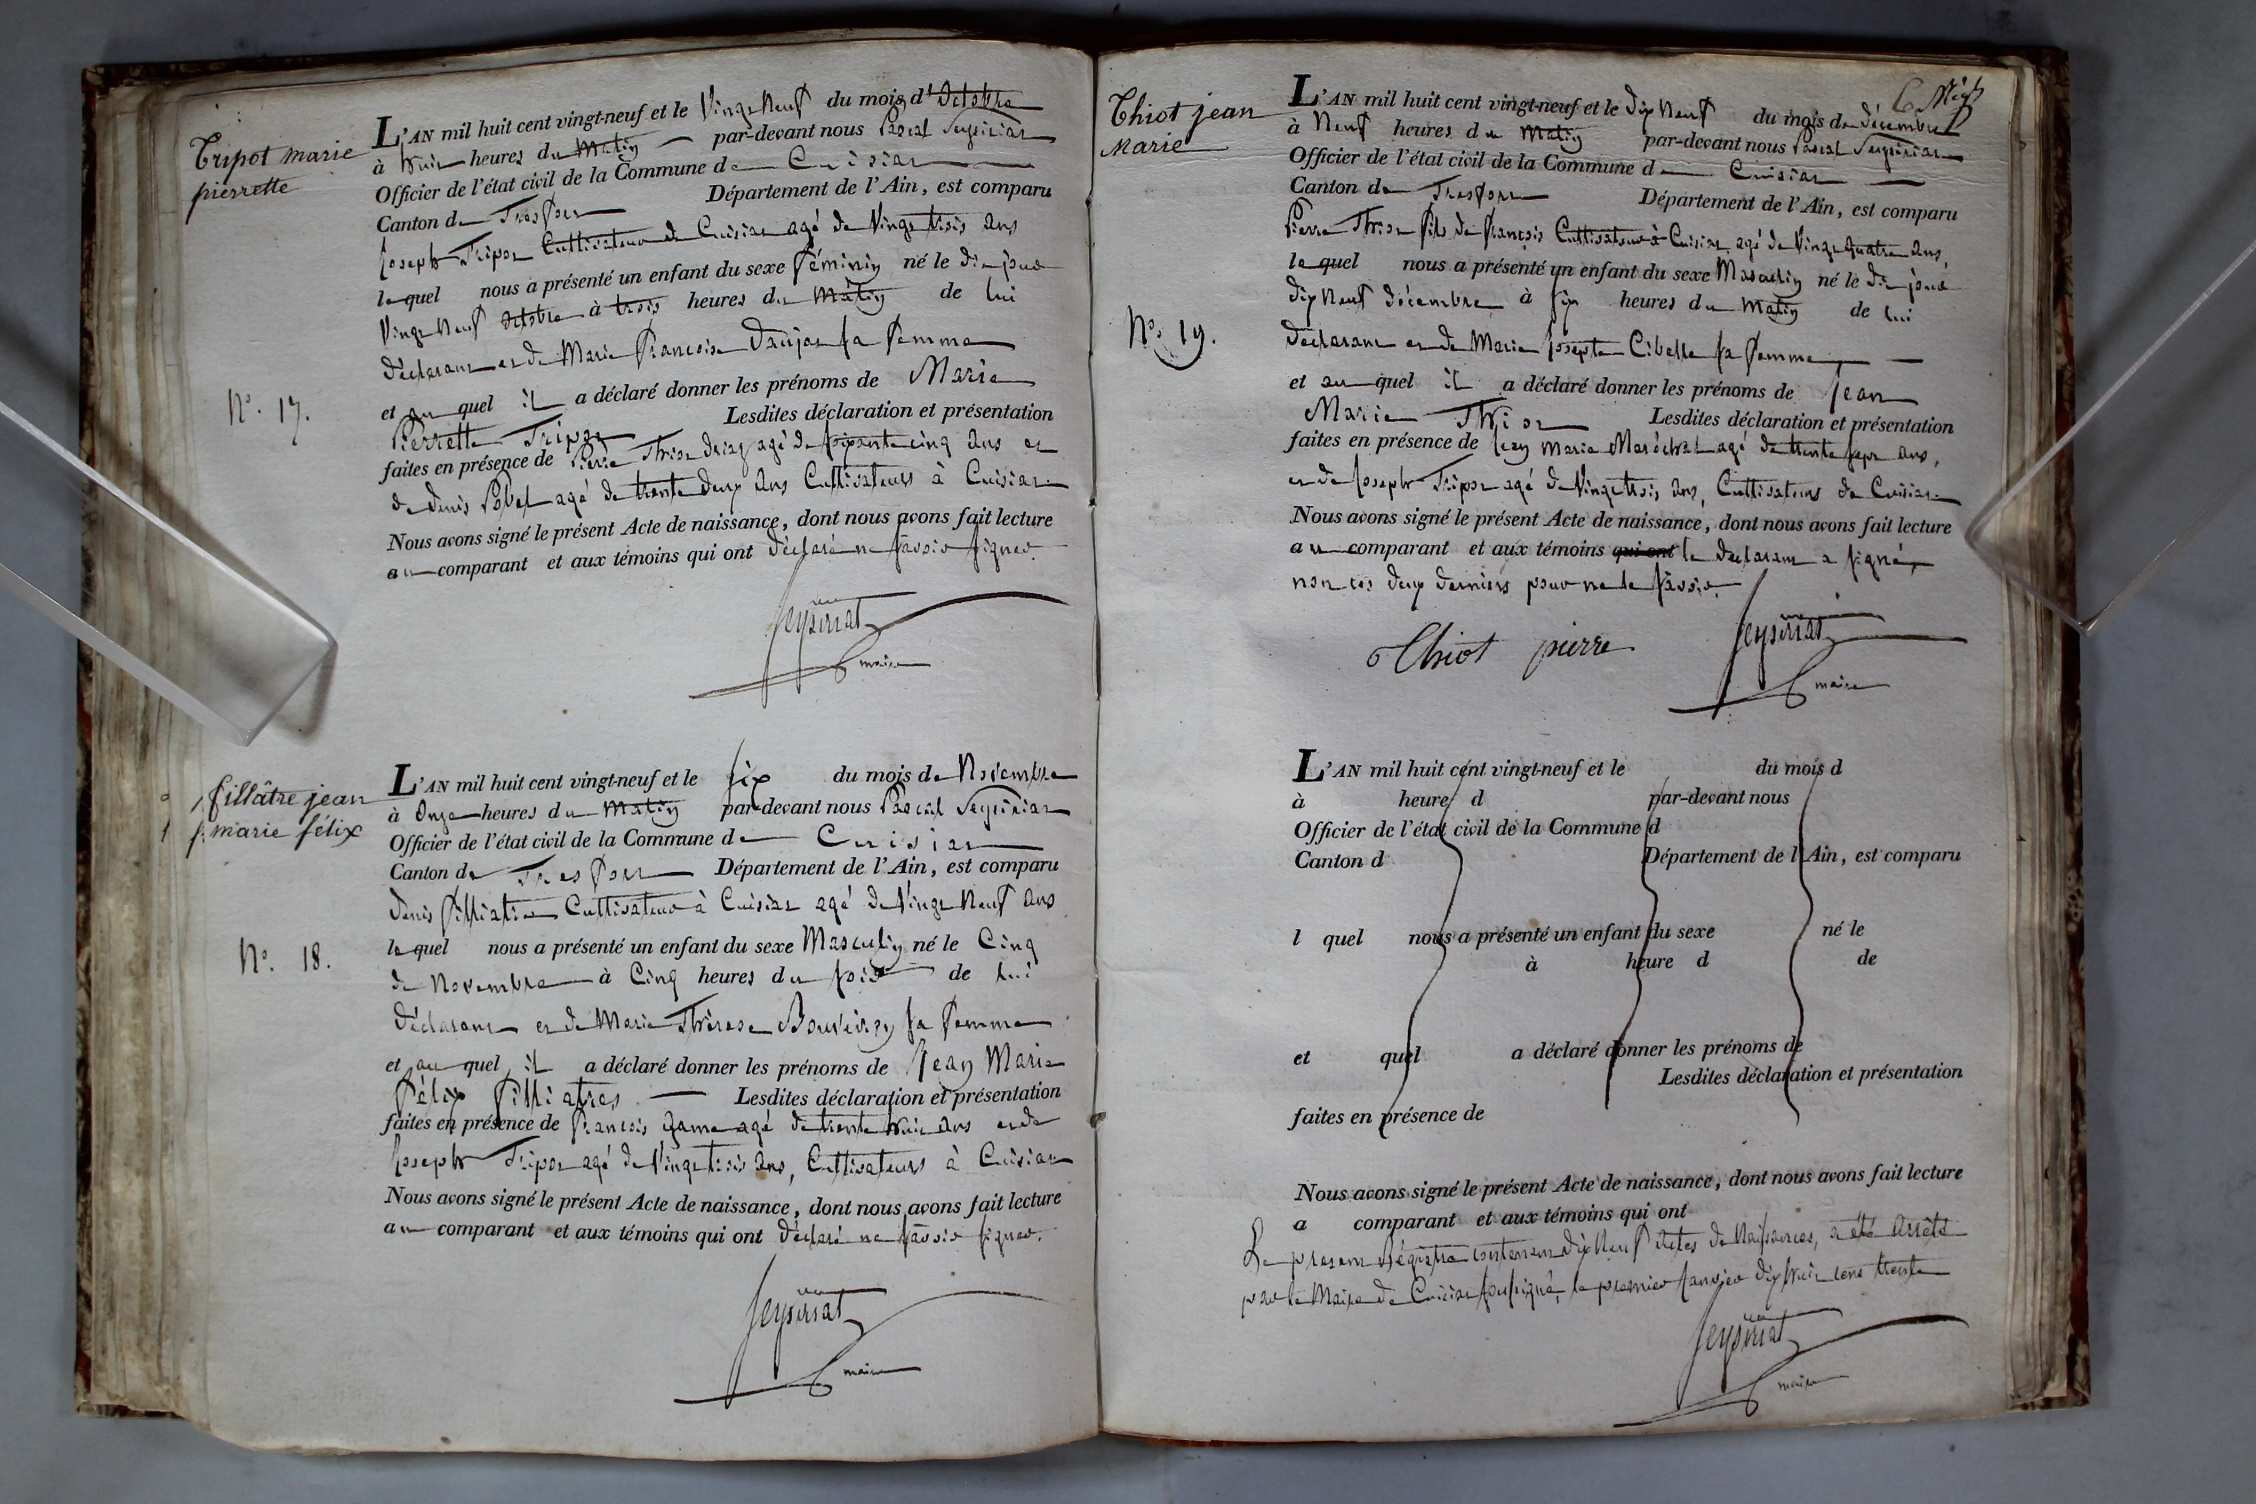 Tripot marie
pierrette
L'AN mil huit cent vingt-neuf et le Vingt Neuf du mois d'Octobre
à huit heures du Matin par-devant nous Pascal Seyssiriat
Officier de l'état civil de la Commune de Cuisiat
Canton de Treffort Département de l'Ain, est comparu
Joseph Tripot Cultivateur de Cuisiat agé de Vingt trois ans
lequel nous a présenté un enfant du sexe féminin né le dit jour
Vingt Neuf Octobre à trois heures du Matin de lui
déclarant et de Marie françoise Daujat sa femme
No. 17.
et au quel il a déclaré donner les prénoms de Marie
Pierrette Tripot Lesdites déclaration et présentation
faites en présence de Pierre Thiot agé de soixante cinq ans et
de denis Pobel agé de trente deux ans Cultivateurs à Cuisiat
Nous avons signé le présent Acte de naissance, dont nous avons fait lecture
au comparant et aux témoins qui ont déclaré ne savoir signer.
Seyssiriat
maire
fillâtre jean
marie félix
L'AN mil huit cent vingt-neuf et le six du mois de Novembre
à Onze heures du Matin par-devant nous Pascal Seyssiriat
Officier de l'état civil de la Commune de Cuisiat
Canton de Treffort Département de l'Ain, est comparu
denis filliatre Cultivateur à Cuisiat agé de Vingt Neuf ans
No. 18.
lequel nous a présenté un enfant du sexe Masculin né le Cinq
de Novembre à Cinq heures du soir de lui
déclarant et de Marie Thérese Bouveiron sa femme
et au quel il a déclaré donner les prénoms de Jean Marie
félix filliatres Lesdites déclaration et présentation
faites en présence de françois agé de trente huit ans et de
Joseph Tripot agé de Vingt trois ans, Cultivateurs à Cuisiat
Nous avons signé le présent Acte de naissance, dont nous avons fait lecture
au comparant et aux témoins qui ont déclaré ne savoir signer.
Seyssiriat
maire
Thiot jean
Marie
L'AN mil huit cent vingt-neuf et le dix Neuf du mois de décembre
à Neuf heures du Matin par-devant nous Pascal Seyssiriat
Officier de l'état civil de la Commune d Cuisiat
Canton de Treffort Département de l'Ain, est comparu
Pierre Thiot fils de françois Cultivateur à Cuisiat, agé de Vingt quatre ans,
lequel nous a présenté un enfant du sexe Masculin né le dit jour
dix Neuf décembre à six heures du Matin de lui
No. 19.
déclarant et de Marie Josephte Cibelle sa femme
et au quel il a déclaré donner les prénoms de Jean
Marie Thiot Lesdites déclaration et présentation
faites en présence de Jean Marie Maréchal agé de trente sept ans,
et de Joseph Tripot agé de Vingt trois ans, Cultivateurs de Cuisiat
Nous avons signé le présent Acte de naissance, dont nous avons fait lecture
au comparant et aux témoins qui ont le déclarant a signé,
non les deux derniers pour ne le savoir.
Thiot pierre
Seyssiriat
maire
L'AN mil huit cent vingt-neuf et le du mois d
à heure d par-devant nous
Officier de l'état civil de la Commune d
Canton d Département de l'Ain, est comparu
l quel nous a présenté un enfant du sexe né le
à heure d de
et quel a déclaré donner les prénoms de
Lesdites déclaration et présentation
faites en présence de
Nous avons signé le présent Acte de naissance, dont nous avons fait lecture
a comparant et aux témoins qui ont
Le present Régistre contenant dix Neuf Actes de Naissances, a été Arrêté
par le Maire de Cuisiat soussigné, le premier Janvier dix huit cent trente
Seyssiriat
maire